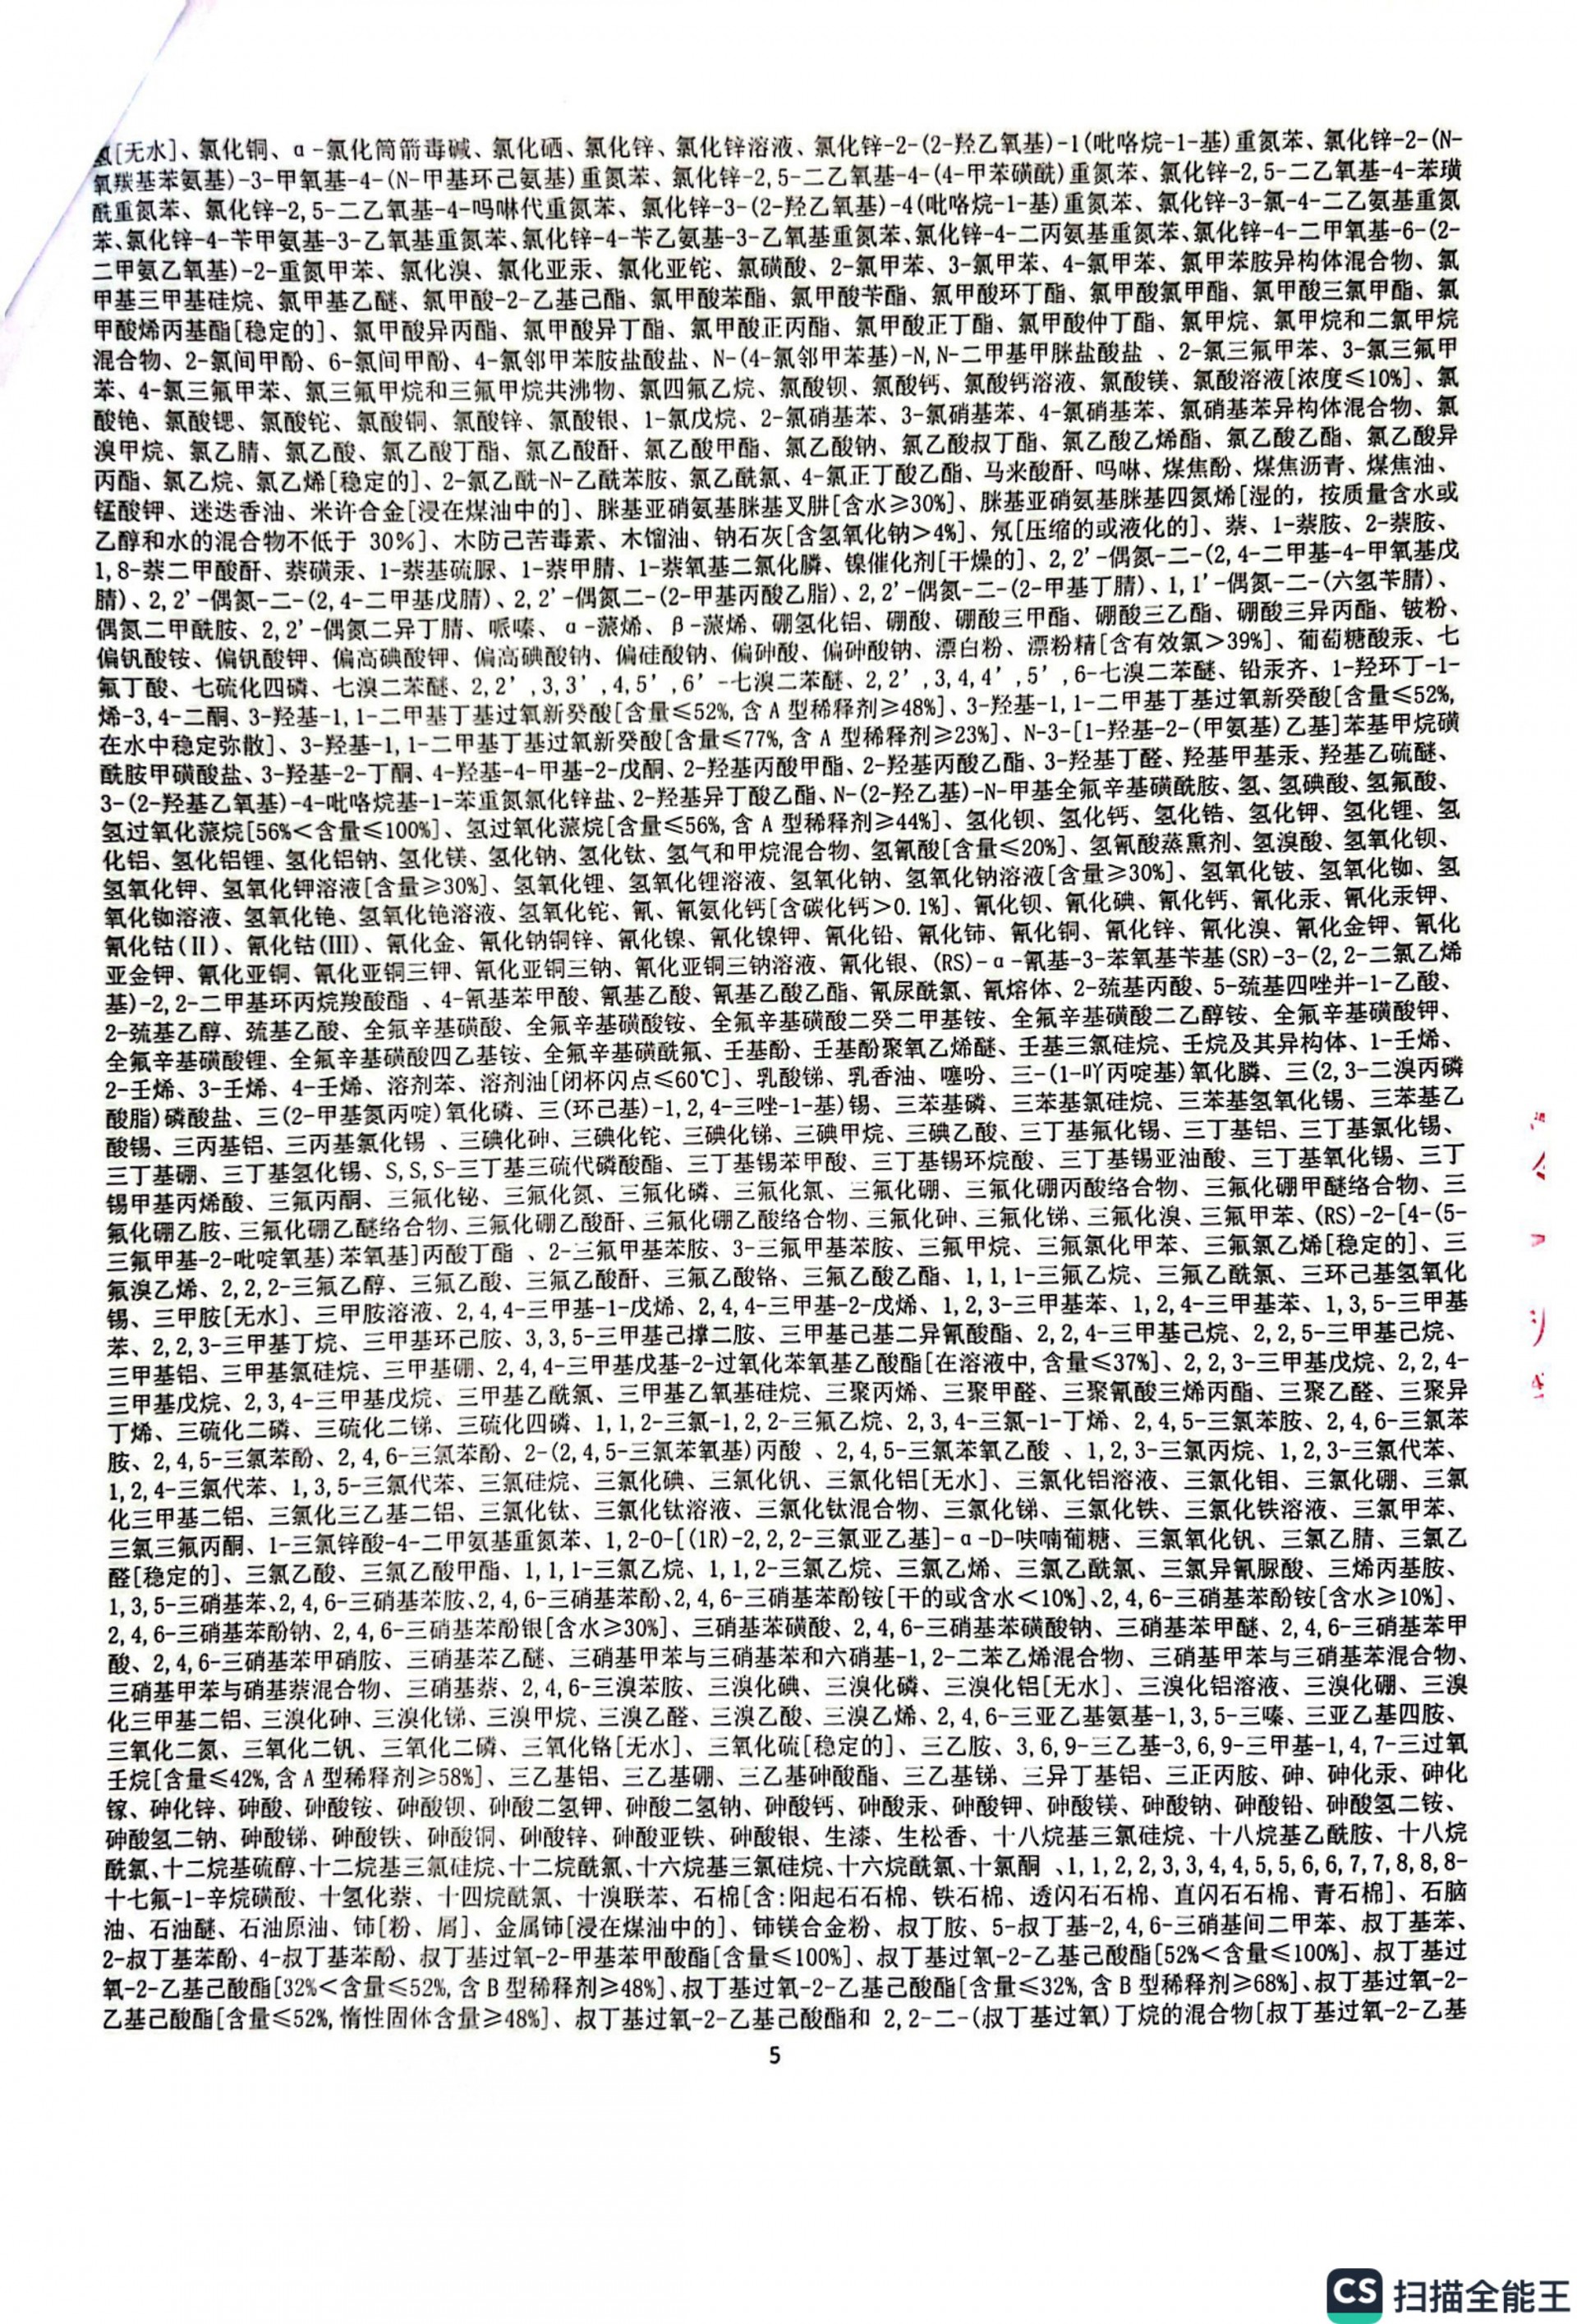 氢[无水]、氯化铜、α-氯化筒箭毒碱、氯化硒、氯化锌、氯化锌溶液、氯化锌-2-(2-羟乙氧基)-1(吡咯烷-1-基)重氮苯、氯化锌-2-(N-
氧羰基苯氨基)-3-甲氧基-4-(N-甲基环己氨基)重氮苯、氯化锌-2,5-二乙氧基-4-(4-甲苯磺酰)重氮苯、氯化锌-2,5-二乙氧基-4-苯磺
酰重氮苯、氯化锌-2,5-二乙氧基-4-吗啉代重氮苯、氯化锌-3-(2-羟乙氧基)-4(吡咯烷-1-基)重氮苯、氯化锌-3-氯-4-二乙氨基重氮
苯、氯化锌-4-苄甲氨基-3-乙氧基重氮苯、氯化锌-4-苄乙氨基-3-乙氧基重氮苯、氯化锌-4-二丙氨基重氮苯、氯化锌-4-二甲氧基-6-(2-
二甲氨乙氧基)-2-重氮甲苯、氯化溴、氯化亚汞、氯化亚铊、氯磺酸、2-氯甲苯、3-氯甲苯、4-氯甲苯、氯甲苯胺异构体混合物、氯
甲基三甲基硅烷、氯甲基乙醚、氯甲酸-2-乙基己酯、氯甲酸苯酯、氯甲酸苄酯、氯甲酸环丁酯、氯甲酸氯甲酯、氯甲酸三氯甲酯、氯
甲酸烯丙基酯[稳定的]、氯甲酸异丙酯、氯甲酸异丁酯、氯甲酸正丙酯、氯甲酸正丁酯、氯甲酸仲丁酯、氯甲烷、氯甲烷和二氯甲烷
混合物、2-氯间甲酚、6-氯间甲酚、4-氯邻甲苯胺盐酸盐、N-(4-氯邻甲苯基)-N,N-二甲基甲脒盐酸盐 、2-氯三氟甲苯、3-氯三氟甲
苯、4-氯三氟甲苯、氯三氟甲烷和三氟甲烷共沸物、氯四氟乙烷、氯酸钡、氯酸钙、氯酸钙溶液、氯酸镁、氯酸溶液[浓度≤10%]、氯
酸铯、氯酸锶、氯酸铊、氯酸铜、氯酸锌、氯酸银、1-氯戊烷、2-氯硝基苯、3-氯硝基苯、4-氯硝基苯、氯硝基苯异构体混合物、氯
溴甲烷、氯乙腈、氯乙酸、氯乙酸丁酯、氯乙酸酐、氯乙酸甲酯、氯乙酸钠、氯乙酸叔丁酯、氯乙酸乙烯酯、氯乙酸乙酯、氯乙酸异
丙酯、氯乙烷、氯乙烯[稳定的]、2-氯乙酰-N-乙酰苯胺、氯乙酰氯、4-氯正丁酸乙酯、马来酸酐、吗啉、煤焦酚、煤焦沥青、煤焦油、
锰酸钾、迷迭香油、米许合金[浸在煤油中的]、脒基亚硝氨基脒基叉肼[含水≥30%]、脒基亚硝氨基脒基四氮烯[湿的，按质量含水或
乙醇和水的混合物不低于 30%]、木防己苦毒素、木馏油、钠石灰[含氢氧化钠>4%]、氖[压缩的或液化的]、萘、1-萘胺、2-萘胺、
1,8-萘二甲酸酐、萘磺汞、1-萘基硫脲、1-萘甲腈、1-萘氧基二氯化膦、镍催化剂[干燥的]、2,2'-偶氮-二-(2,4-二甲基-4-甲氧基戊
腈)、2,2'-偶氮-二-(2,4-二甲基戊腈)、2,2'-偶氮二-(2-甲基丙酸乙脂)、2,2'-偶氮-二-(2-甲基丁腈)、1,1'-偶氮-二-(六氢苄腈)、
偶氮二甲酰胺、2,2'-偶氮二异丁腈、哌嗪、α-蒎烯、β-蒎烯、硼氢化铝、硼酸、硼酸三甲酯、硼酸三乙酯、硼酸三异丙酯、铍粉、
偏钒酸铵、偏钒酸钾、偏高碘酸钾、偏高碘酸钠、偏硅酸钠、偏砷酸、偏砷酸钠、漂白粉、漂粉精[含有效氯>39%]、葡萄糖酸汞、七
氟丁酸、七硫化四磷、七溴二苯醚、2,2',3,3',4,5',6'-七溴二苯醚、2,2',3,4,4',5',6-七溴二苯醚、铅汞齐、1-羟环丁-1-
烯-3,4-二酮、3-羟基-1,1-二甲基丁基过氧新癸酸[含量≤52%,含 A 型稀释剂≥48%]、3-羟基-1,1-二甲基丁基过氧新癸酸[含量≤52%,
在水中稳定弥散]、3-羟基-1,1-二甲基丁基过氧新癸酸[含量≤77%,含 A 型稀释剂≥23%]、N-3-[1-羟基-2-(甲氨基)乙基]苯基甲烷磺
酰胺甲磺酸盐、3-羟基-2-丁酮、4-羟基-4-甲基-2-戊酮、2-羟基丙酸甲酯、2-羟基丙酸乙酯、3-羟基丁醛、羟基甲基汞、羟基乙硫醚、
3-(2-羟基乙氧基)-4-吡咯烷基-1-苯重氮氯化锌盐、2-羟基异丁酸乙酯、N-(2-羟乙基)-N-甲基全氟辛基磺酰胺、氢、氢碘酸、氢氟酸、
氢过氧化蒎烷[56%<含量≤100%]、氢过氧化蒎烷[含量≤56%,含 A 型稀释剂≥44%]、氢化钡、氢化钙、氢化锆、氢化钾、氢化锂、氢
化铝、氢化铝锂、氢化铝钠、氢化镁、氢化钠、氢化钛、氢气和甲烷混合物、氢氰酸[含量≤20%]、氢氰酸蒸熏剂、氢溴酸、氢氧化钡、
氢氧化钾、氢氧化钾溶液[含量≥30%]、氢氧化锂、氢氧化锂溶液、氢氧化钠、氢氧化钠溶液[含量≥30%]、氢氧化铍、氢氧化铷、氢
氧化铷溶液、氢氧化铯、氢氧化铯溶液、氢氧化铊、氰、氰氨化钙[含碳化钙>0.1%]、氰化钡、氰化碘、氰化钙、氰化汞、氰化汞钾、
氰化钴(Ⅱ)、氰化钴(III)、氰化金、氰化钠铜锌、氰化镍、氰化镍钾、氰化铅、氰化铈、氰化铜、氰化锌、氰化溴、氰化金钾、氰化
亚金钾、氰化亚铜、氰化亚铜三钾、氰化亚铜三钠、氰化亚铜三钠溶液、氰化银、(RS)-α-氰基-3-苯氧基苄基(SR)-3-(2,2-二氯乙烯
基)-2,2-二甲基环丙烷羧酸酯 、4-氰基苯甲酸、氰基乙酸、氰基乙酸乙酯、氰尿酰氯、氰熔体、2-巯基丙酸、5-巯基四唑并-1-乙酸、
2-巯基乙醇、巯基乙酸、全氟辛基磺酸、全氟辛基磺酸铵、全氟辛基磺酸二癸二甲基铵、全氟辛基磺酸二乙醇铵、全氟辛基磺酸钾、
全氟辛基磺酸锂、全氟辛基磺酸四乙基铵、全氟辛基磺酰氟、壬基酚、壬基酚聚氧乙烯醚、壬基三氯硅烷、壬烷及其异构体、1-壬烯、
2-壬烯、3-壬烯、4-壬烯、溶剂苯、溶剂油[闭杯闪点≤60℃]、乳酸锑、乳香油、噻吩、三-(1-吖丙啶基)氧化膦、三(2,3-二溴丙磷
酸脂)磷酸盐、三(2-甲基氮丙啶)氧化磷、三(环己基)-1,2,4-三唑-1-基)锡、三苯基磷、三苯基氯硅烷、三苯基氢氧化锡、三苯基乙
酸锡、三丙基铝、三丙基氯化锡 、三碘化砷、三碘化铊、三碘化锑、三碘甲烷、三碘乙酸、三丁基氟化锡、三丁基铝、三丁基氯化锡、
三丁基硼、三丁基氢化锡、S,S,S-三丁基三硫代磷酸酯、三丁基锡苯甲酸、三丁基锡环烷酸、三丁基锡亚油酸、三丁基氧化锡、三丁
锡甲基丙烯酸、三氟丙酮、三氟化铋、三氟化氮、三氟化磷、三氟化氯、三氟化硼、三氟化硼丙酸络合物、三氟化硼甲醚络合物、三
氟化硼乙胺、三氟化硼乙醚络合物、三氟化硼乙酸酐、三氟化硼乙酸络合物、三氟化砷、三氟化锑、三氟化溴、三氟甲苯、(RS)-2-[4-(5-
三氟甲基-2-吡啶氧基)苯氧基]丙酸丁酯 、2-三氟甲基苯胺、3-三氟甲基苯胺、三氟甲烷、三氟氯化甲苯、三氟氯乙烯[稳定的]、三
氟溴乙烯、2,2,2-三氟乙醇、三氟乙酸、三氟乙酸酐、三氟乙酸铬、三氟乙酸乙酯、1,1,1-三氟乙烷、三氟乙酰氯、三环己基氢氧化
锡、三甲胺[无水]、三甲胺溶液、2,4,4-三甲基-1-戊烯、2,4,4-三甲基-2-戊烯、1,2,3-三甲基苯、1,2,4-三甲基苯、1,3,5-三甲基
苯、2,2,3-三甲基丁烷、三甲基环己胺、3,3,5-三甲基己撑二胺、三甲基己基二异氰酸酯、2,2,4-三甲基己烷、2,2,5-三甲基己烷、
三甲基铝、三甲基氯硅烷、三甲基硼、2,4,4-三甲基戊基-2-过氧化苯氧基乙酸酯[在溶液中,含量≤37%]、2,2,3-三甲基戊烷、2,2,4-
三甲基戊烷、2,3,4-三甲基戊烷、三甲基乙酰氯、三甲基乙氧基硅烷、三聚丙烯、三聚甲醛、三聚氰酸三烯丙酯、三聚乙醛、三聚异
丁烯、三硫化二磷、三硫化二锑、三硫化四磷、1,1,2-三氯-1,2,2-三氟乙烷、2,3,4-三氯-1-丁烯、2,4,5-三氯苯胺、2,4,6-三氯苯
胺、2,4,5-三氯苯酚、2,4,6-三氯苯酚、2-(2,4,5-三氯苯氧基)丙酸 、2,4,5-三氯苯氧乙酸 、1,2,3-三氯丙烷、1,2,3-三氯代苯、
1,2,4-三氯代苯、1,3,5-三氯代苯、三氯硅烷、三氯化碘、三氯化钒、三氯化铝[无水]、三氯化铝溶液、三氯化钼、三氯化硼、三氯
化三甲基二铝、三氯化三乙基二铝、三氯化钛、三氯化钛溶液、三氯化钛混合物、三氯化锑、三氯化铁、三氯化铁溶液、三氯甲苯、
三氯三氟丙酮、1-三氯锌酸-4-二甲氨基重氮苯、1,2-O-[(1R)-2,2,2-三氯亚乙基]-α-D-呋喃葡糖、三氯氧化钒、三氯乙腈、三氯乙
醛[稳定的]、三氯乙酸、三氯乙酸甲酯、1,1,1-三氯乙烷、1,1,2-三氯乙烷、三氯乙烯、三氯乙酰氯、三氯异氰脲酸、三烯丙基胺、
1,3,5-三硝基苯、2,4,6-三硝基苯胺、2,4,6-三硝基苯酚、2,4,6-三硝基苯酚铵[干的或含水<10%]、2,4,6-三硝基苯酚铵[含水≥10%]、
2,4,6-三硝基苯酚钠、2,4,6-三硝基苯酚银[含水≥30%]、三硝基苯磺酸、2,4,6-三硝基苯磺酸钠、三硝基苯甲醚、2,4,6-三硝基苯甲
酸、2,4,6-三硝基苯甲硝胺、三硝基苯乙醚、三硝基甲苯与三硝基苯和六硝基-1,2-二苯乙烯混合物、三硝基甲苯与三硝基苯混合物、
三硝基甲苯与硝基萘混合物、三硝基萘、2,4,6-三溴苯胺、三溴化碘、三溴化磷、三溴化铝[无水]、三溴化铝溶液、三溴化硼、三溴
化三甲基二铝、三溴化砷、三溴化锑、三溴甲烷、三溴乙醛、三溴乙酸、三溴乙烯、2,4,6-三亚乙基氨基-1,3,5-三嗪、三亚乙基四胺、
三氧化二氮、三氧化二钒、三氧化二磷、三氧化铬[无水]、三氧化硫[稳定的]、三乙胺、3,6,9-三乙基-3,6,9-三甲基-1,4,7-三过氧
壬烷[含量≤42%,含 A 型稀释剂≥58%]、三乙基铝、三乙基硼、三乙基砷酸酯、三乙基锑、三异丁基铝、三正丙胺、砷、砷化汞、砷化
镓、砷化锌、砷酸、砷酸铵、砷酸钡、砷酸二氢钾、砷酸二氢钠、砷酸钙、砷酸汞、砷酸钾、砷酸镁、砷酸钠、砷酸铅、砷酸氢二铵、
砷酸氢二钠、砷酸锑、砷酸铁、砷酸铜、砷酸锌、砷酸亚铁、砷酸银、生漆、生松香、十八烷基三氯硅烷、十八烷基乙酰胺、十八烷
酰氯、十二烷基硫醇、十二烷基三氯硅烷、十二烷酰氯、十六烷基三氯硅烷、十六烷酰氯、十氯酮 、1,1,2,2,3,3,4,4,5,5,6,6,7,7,8,8,8-
十七氟-1-辛烷磺酸、十氢化萘、十四烷酰氯、十溴联苯、石棉[含:阳起石石棉、铁石棉、透闪石石棉、直闪石石棉、青石棉]、石脑
油、石油醚、石油原油、铈[粉、屑]、金属铈[浸在煤油中的]、铈镁合金粉、叔丁胺、5-叔丁基-2,4,6-三硝基间二甲苯、叔丁基苯、
2-叔丁基苯酚、4-叔丁基苯酚、叔丁基过氧-2-甲基苯甲酸酯[含量≤100%]、叔丁基过氧-2-乙基己酸酯[52%<含量≤100%]、叔丁基过
氧-2-乙基己酸酯[32%<含量≤52%,含 B 型稀释剂≥48%]、叔丁基过氧-2-乙基己酸酯[含量≤32%,含 B 型稀释剂≥68%]、叔丁基过氧-2-
乙基己酸酯[含量≤52%,惰性固体含量≥48%]、叔丁基过氧-2-乙基己酸酯和 2,2-二-(叔丁基过氧)丁烷的混合物[叔丁基过氧-2-乙基
5
CS 扫描全能王